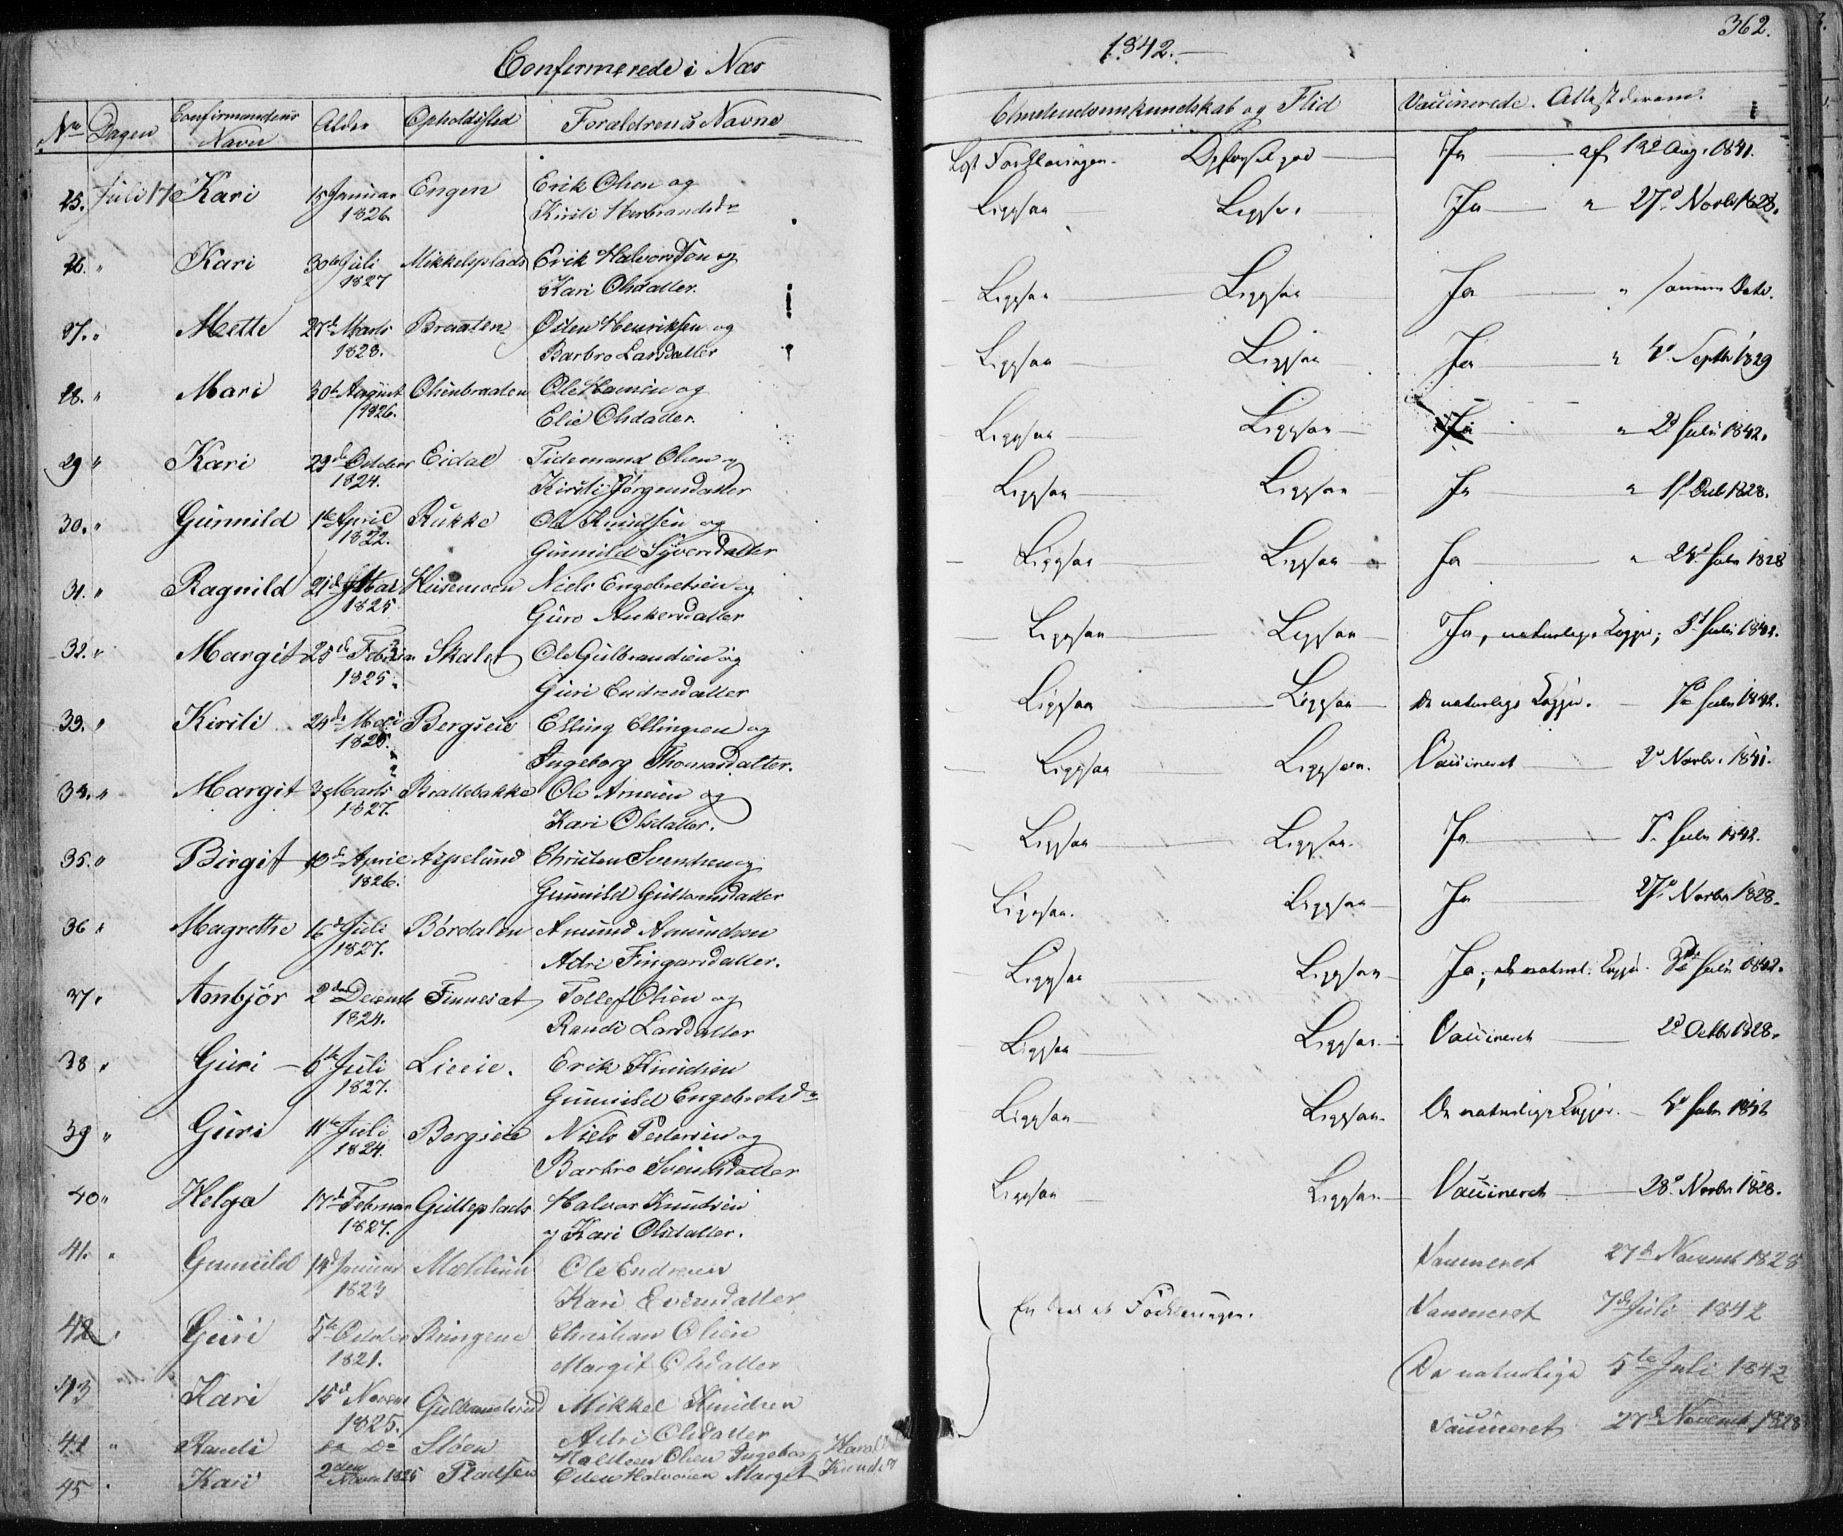 Confirmerede i Næs
1842.
362.
No Dagen Confirmandens Navn Alder Opholdssted Forældrenes Navne
Christendomskundskab og Flid Vaccinerede. Attest derom.
Ja af 12te Aug. 1841.
25. Juli 17 Kari 15 Januar 1826 Engen Erik Olsen og
Kirsti Herbrandsdr
Ligesaa Ja 27de Novbr 1828.
26. " Kari 30te Juli 1827 Mikkelsplads Erik Halvorsen og
Kari Olsdatter.
Ligesaa Ligesaa Ja " samme Dato.
27. " Mette 27de Marts 1828. Braaten Østen Henriksen og
Barbro Larsdatter
Ligesaa Ligesaa Ja " Septbr 1829
28. " Mari 30te August 1826. Olsenbraaten Ole Hansen og
Elie Olsdatter.
Ligesaa Ligesaa Ja " 2d Juli 1842.
29 " Kari 23de October 1824. Eidal Tidemand Olsen og
Kirsti Jørgensdatter
Ligesaa Ligesaa Ja " 1828.
30. " Gunnild 1te April 1822. Rukke Ole Knudsen og
Gunnild Syversdatter
Ligesaa Ligesaa Ja " 1828
31. " Ragnild 21de Mai 1825 Niels Engebretsen og
Guro Ankersdatter
Ligesaa Ligesaa Ja, naturlige Kopper; 5d Juli 1842.
32. " Margit 1825. Skalet Ole Gulbrandsen og
Guri Endresdatter
Ligesaa Ligesaa De naturlige Kopper. Juli 1842.
33. " Kirsti 24de Mai 1825. Bergseie Elling Ellingsen og
Ingeborg Thomasdatter.
Ligesaa Ligesaa. Vaccineret 2d Novbr. 1841.
34. " Margit Marts 1827. Brattebakke Ole Arnesen og
Kari Olsdatter.
Ligesaa Ligesaa. Ja Juli 1842.
35. " Birgit 10de April 1826. Aspelund Christen Svendsen og
Gunnild
Ligesaa. Ligesaa Ja 27de Novbr 1828.
36 " Magrethe Juli 1827. Børdalen Amund Amundsen
Astri Fingarsdatter.
Ligesaa Ligesaa Ja, de naturl. Kopper. Juli 1842.
37 " Ambjør 2den Decembr 1824. Tollef Olsen og
Randi Larsdatter
Ligesaa Ligesaa Vaccineret 2d Octbr 1828.
38 " Guri 6te Juli 1827. Lieeie. Erik Knudsen
Gunnild Engebretsdr
Ligesaa Ligesaa. De naturlige Kopper. Juli 1842
39 " Guri 11te Juli 1824. Bergseie Niels Pedersen og
Barbro Svendsdatter
Ligesaa Ligesaa Vaccineret 28d Novbr 1828.
40 " Helga 17de Februar 1827. Gulleplads Halvor Knudsen
og Kari Olsdatter.
41. " Gunnild 14d Januar 1823 Ole Endresen
Kari Evensdatter
Vaccineret 27de Novembr 1828
42 " Guri 5te October 1821. Bringene Christian Olsen
Margit Olsdatter
En Deel af Forklaringen. Vaccineret 7de Juli 1842
43 Kari 15d Novem 1825. Gulbrandsrud Mikkel Knudsen
Astri Olsdatter
De naturlige 5te Juli 1842
44 " Randi Do Do Støen Olsen Ingeborg
Vaccineret 27d Novembr 1828
45 " Kari 2den 1825 Pladsen Østen Halvorsen Marget